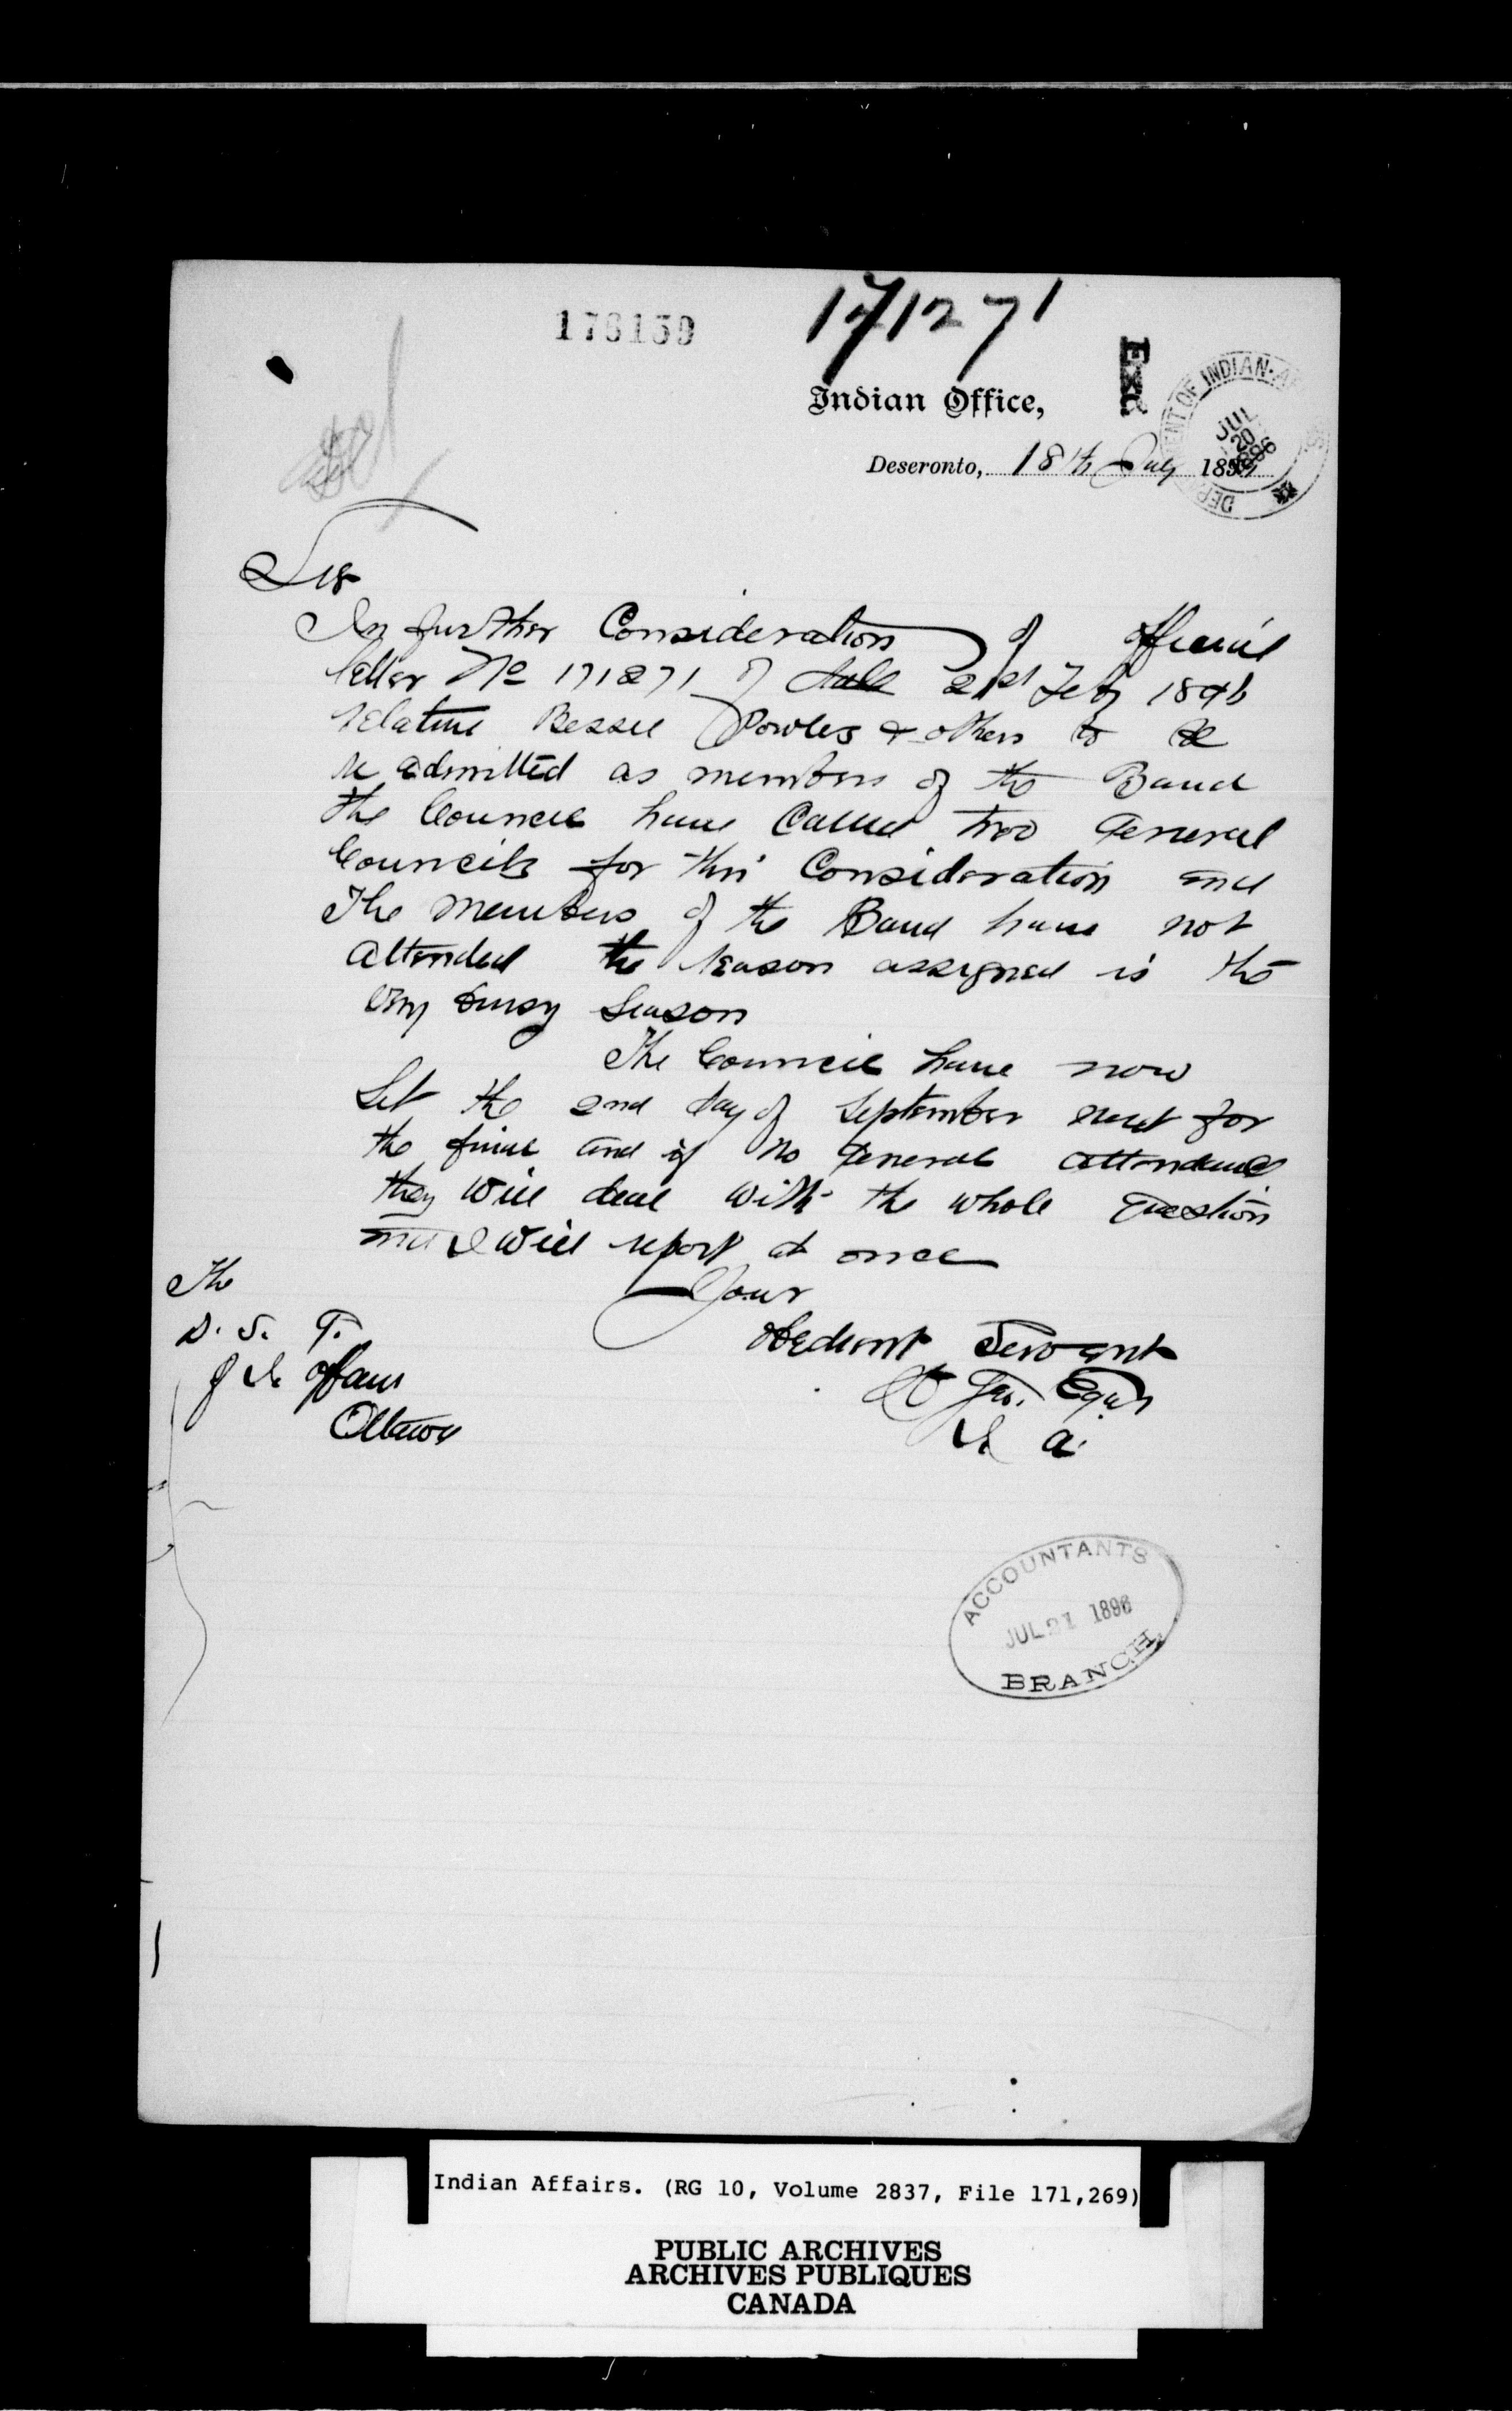 176159
171271
Exd
Indian Office,
DEPARTMENT OF INDIAN AFFAIRS
JUL 20 1896
Deseronto, 18th July 189
Sir
In further Consideration of official
letter No 171271 of date 21st Feby 1896
relative Bessie Powles & others to be
re admitted as members of the Band
the Council have Called two General
Councils for this Consideration and
The members of the Band have not
attended the reason assigned is the
very busy season
The Council have now
Set the 2nd day of September next for
the final and if no general attendance
they will deal with the whole question
and I will report at once
Your
Obedient Servant
I a.
The
D. S. G.
of I. Affairs
Ottawa
ACCOUNTANTS
JUL 21 1896
BRANCH
Indian Affairs. (RG 10, Volume 2837, File 171,269)
PUBLIC ARCHIVES
ARCHIVES PUBLIQUES
CANADA